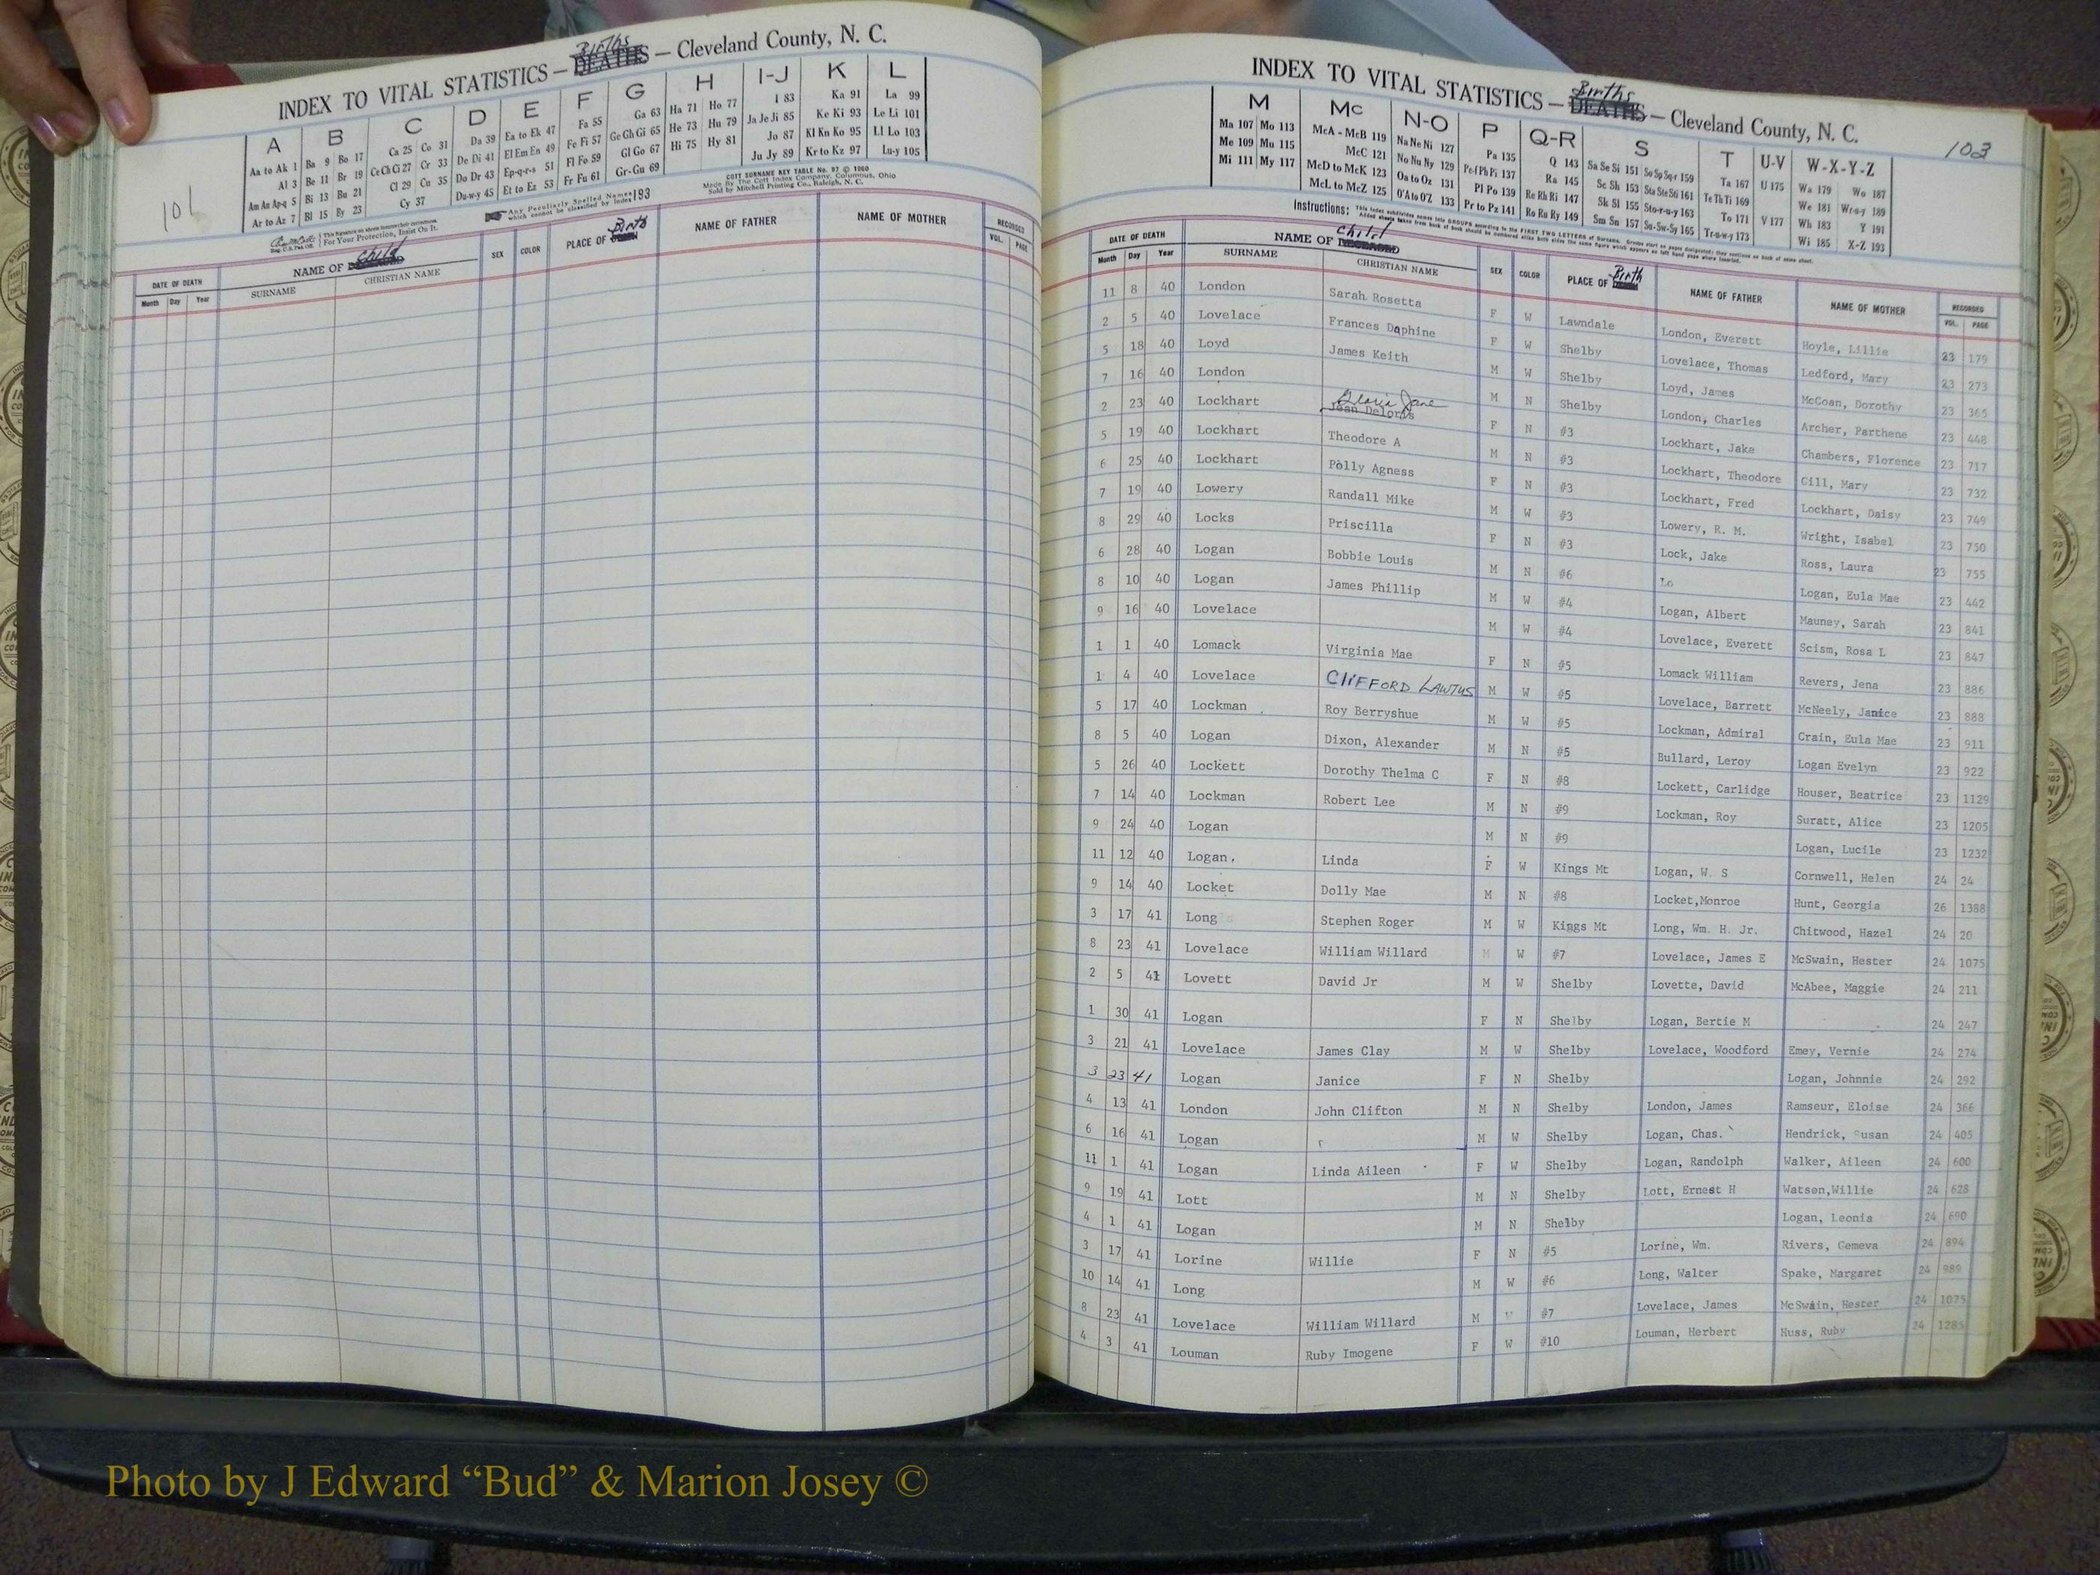 INDEX TO VITAL STATISTICS — Births DEATHS — Cleveland County, N. C.
A B C D E F G H I-J K L
Aa to Ak 1 Ba 9 Bo 17 Ca 25 Co 31 Da 39 Ea to Ek 47 Fa 55 Ga 63 Ha 71 Ho 77 I 83 Ka 91 La 99
Al 3 Be 11 Br 19 Ce Ch Ci 27 Cr 33 De Di 41 El Em En 49 Fe Fi 57 Ge Gh Gi 65 He 73 Hu 79 Ja Je Ji 85 Ke Ki 93 Le Li 101
Am An Ap-q 5 Bi 13 Bu 21 Cl 29 Cu 35 Do Dr 43 Ep-q-r-s 51 Fl Fo 59 Gl Go 67 Hi 75 Hy 81 Jo 87 Kl Kn Ko 95 Ll Lo 103
Ar to Az 7 Bl 15 By 23 Cy 37 Du-w-y 45 Et to Ez 53 Fr Fu 61 Gr-Gu 69 Ju Jy 89 Kr to Kz 97 Lu-y 105
101
For Your Protection, Insist On It.
Any Peculiarly Spelled Names which cannot be classified by Index 193
COTT SURNAME KEY TABLE No. 97 © 1960
Made By The Cott Index Company, Columbus, Ohio
Sold by Mitchell Printing Co., Raleigh, N. C.
DATE OF DEATH NAME OF Child SEX COLOR PLACE OF Birth NAME OF FATHER NAME OF MOTHER RECORDED
Month Day Year SURNAME CHRISTIAN NAME VOL. PAGE
INDEX TO VITAL STATISTICS — Births DEATHS — Cleveland County, N. C.
103
M Mc N-O P Q-R S T U-V W-X-Y-Z
Ma 107 Mo 113 McA - McB 119 Na Ne Ni 127 Pa 135 Q 143 Sa Se Si 151 So Sp Sq-r 159 Ta 167 U 175 Wa 179 Wo 187
Me 109 Mu 115 McC 121 No Nu Ny 129 Pe-f Ph Pi 137 Ra 145 Sc Sh 153 Sta Ste Sti 161 Te Th Ti 169 We 181 Wr-u-y 189
Mi 111 My 117 McD to McK 123 Oa to Oz 131 Pl Po 139 Re Rh Ri 147 Sk Sl 155 Sto-r-u-y 163 To 171 V 177 Wh 183 Y 191
McL to McZ 125 O'A to O'Z 133 Pr to Pz 141 Ro Ru Ry 149 Sm Sn 157 Su-Sw-Sy 165 Tr-u-w-y 173 Wi 185 X-Z 193
Instructions:
DATE OF DEATH NAME OF Child DECEASED SEX COLOR PLACE OF Birth NAME OF FATHER NAME OF MOTHER RECORDED
Month Day Year SURNAME CHRISTIAN NAME VOL. PAGE
11 8 40 London Sarah Rosetta F W Lawndale London, Everett Hoyle, Lillie 23 179
2 5 40 Lovelace Frances Daphine F W Shelby Lovelace, Thomas Ledford, Mary 23 273
5 18 40 Loyd James Keith M W Shelby Loyd, James McCoan, Dorothy 23 365
7 16 40 London M N Shelby London, Charles Archer, Parthene 23 448
2 23 40 Lockhart Gloria Jane Jean Deloris F N #3 Lockhart, Jake Chambers, Florence 23 717
5 19 40 Lockhart Theodore A M N #3 Lockhart, Theodore Gill, Mary 23 732
6 25 40 Lockhart Polly Agness F N #3 Lockhart, Fred Lockhart, Daisy 23 749
7 19 40 Lowery Randall Mike M W #3 Lowery, R. M. Wright, Isabel 23 750
8 29 40 Locks Priscilla F N #3 Lock, Jake Ross, Laura 23 755
6 28 40 Logan Bobbie Louis M N #6 Lo Logan, Eula Mae 23 442
8 10 40 Logan James Phillip M W #4 Logan, Albert Mauney, Sarah 23 841
9 16 40 Lovelace M W #4 Lovelace, Everett Scism, Rosa L 23 847
1 1 40 Lomack Virginia Mae F N #5 Lomack William Revers, Jena 23 886
1 4 40 Lovelace CLIFFORD LAWTUS M W #5 Lovelace, Barrett McNeely, Janice 23 888
5 17 40 Lockman Roy Berryshue M W #5 Lockman, Admiral Crain, Eula Mae 23 911
8 5 40 Logan Dixon, Alexander M N #5 Bullard, Leroy Logan Evelyn 23 922
5 26 40 Lockett Dorothy Thelma C F N #8 Lockett, Carlidge Houser, Beatrice 23 1129
7 14 40 Lockman Robert Lee M N #9 Lockman, Roy Suratt, Alice 23 1205
9 24 40 Logan M N #9 Logan, Lucile 23 1232
11 12 40 Logan, Linda F W Kings Mt Logan, W. S Cornwell, Helen 24 24
9 14 40 Locket Dolly Mae M N #8 Locket,Monroe Hunt, Georgia 26 1388
3 17 41 Long Stephen Roger M W Kings Mt Long, Wm. H. Jr. Chitwood, Hazel 24 20
8 23 41 Lovelace William Willard M W #7 Lovelace, James E McSwain, Hester 24 1075
2 5 41 Lovett David Jr M W Shelby Lovette, David McAbee, Maggie 24 211
1 30 41 Logan F N Shelby Logan, Bertie M 24 247
3 21 41 Lovelace James Clay M W Shelby Lovelace, Woodford Emey, Vernie 24 274
3 23 41 Logan Janice F N Shelby Logan, Johnnie 24 292
4 13 41 London John Clifton M N Shelby London, James Ramseur, Eloise 24 366
6 16 41 Logan r M W Shelby Logan, Chas. Hendrick, Susan 24 405
11 1 41 Logan Linda Aileen F W Shelby Logan, Randolph Walker, Aileen 24 600
9 19 41 Lott M N Shelby Lott, Ernest H Watson,Willie 24 628
4 1 41 Logan M N Shelby Logan, Leonia 24 690
3 17 41 Lorine Willie F N #5 Lorine, Wm. Rivers, Gemeva 24 894
10 14 41 Long M W #6 Long, Walter Spake, Margaret 24 989
8 23 41 Lovelace William Willard M #7 Lovelace, James McSwain, Hester 24 1075
4 3 41 Louman Ruby Imogene F W #10 Louman, Herbert Huss, Ruby 24 1285
Photo by J Edward “Bud” & Marion Josey ©